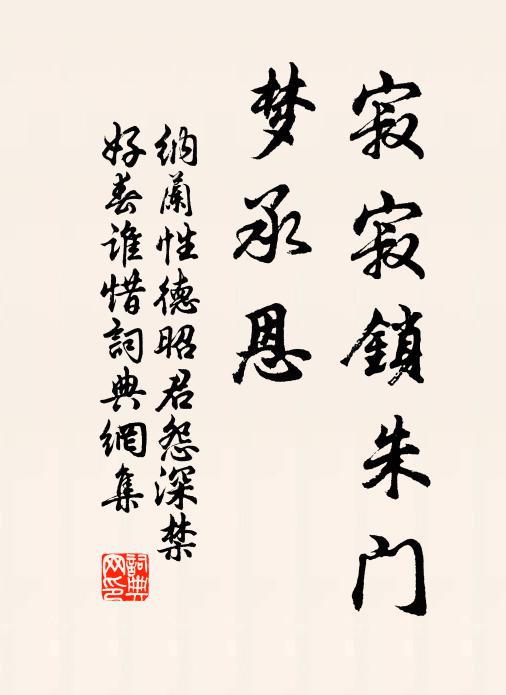 寂寂鎖朱门
梦承恩
纳蘭性德昭君怨深禁
好春谁惜詞典網集
詞典
网印